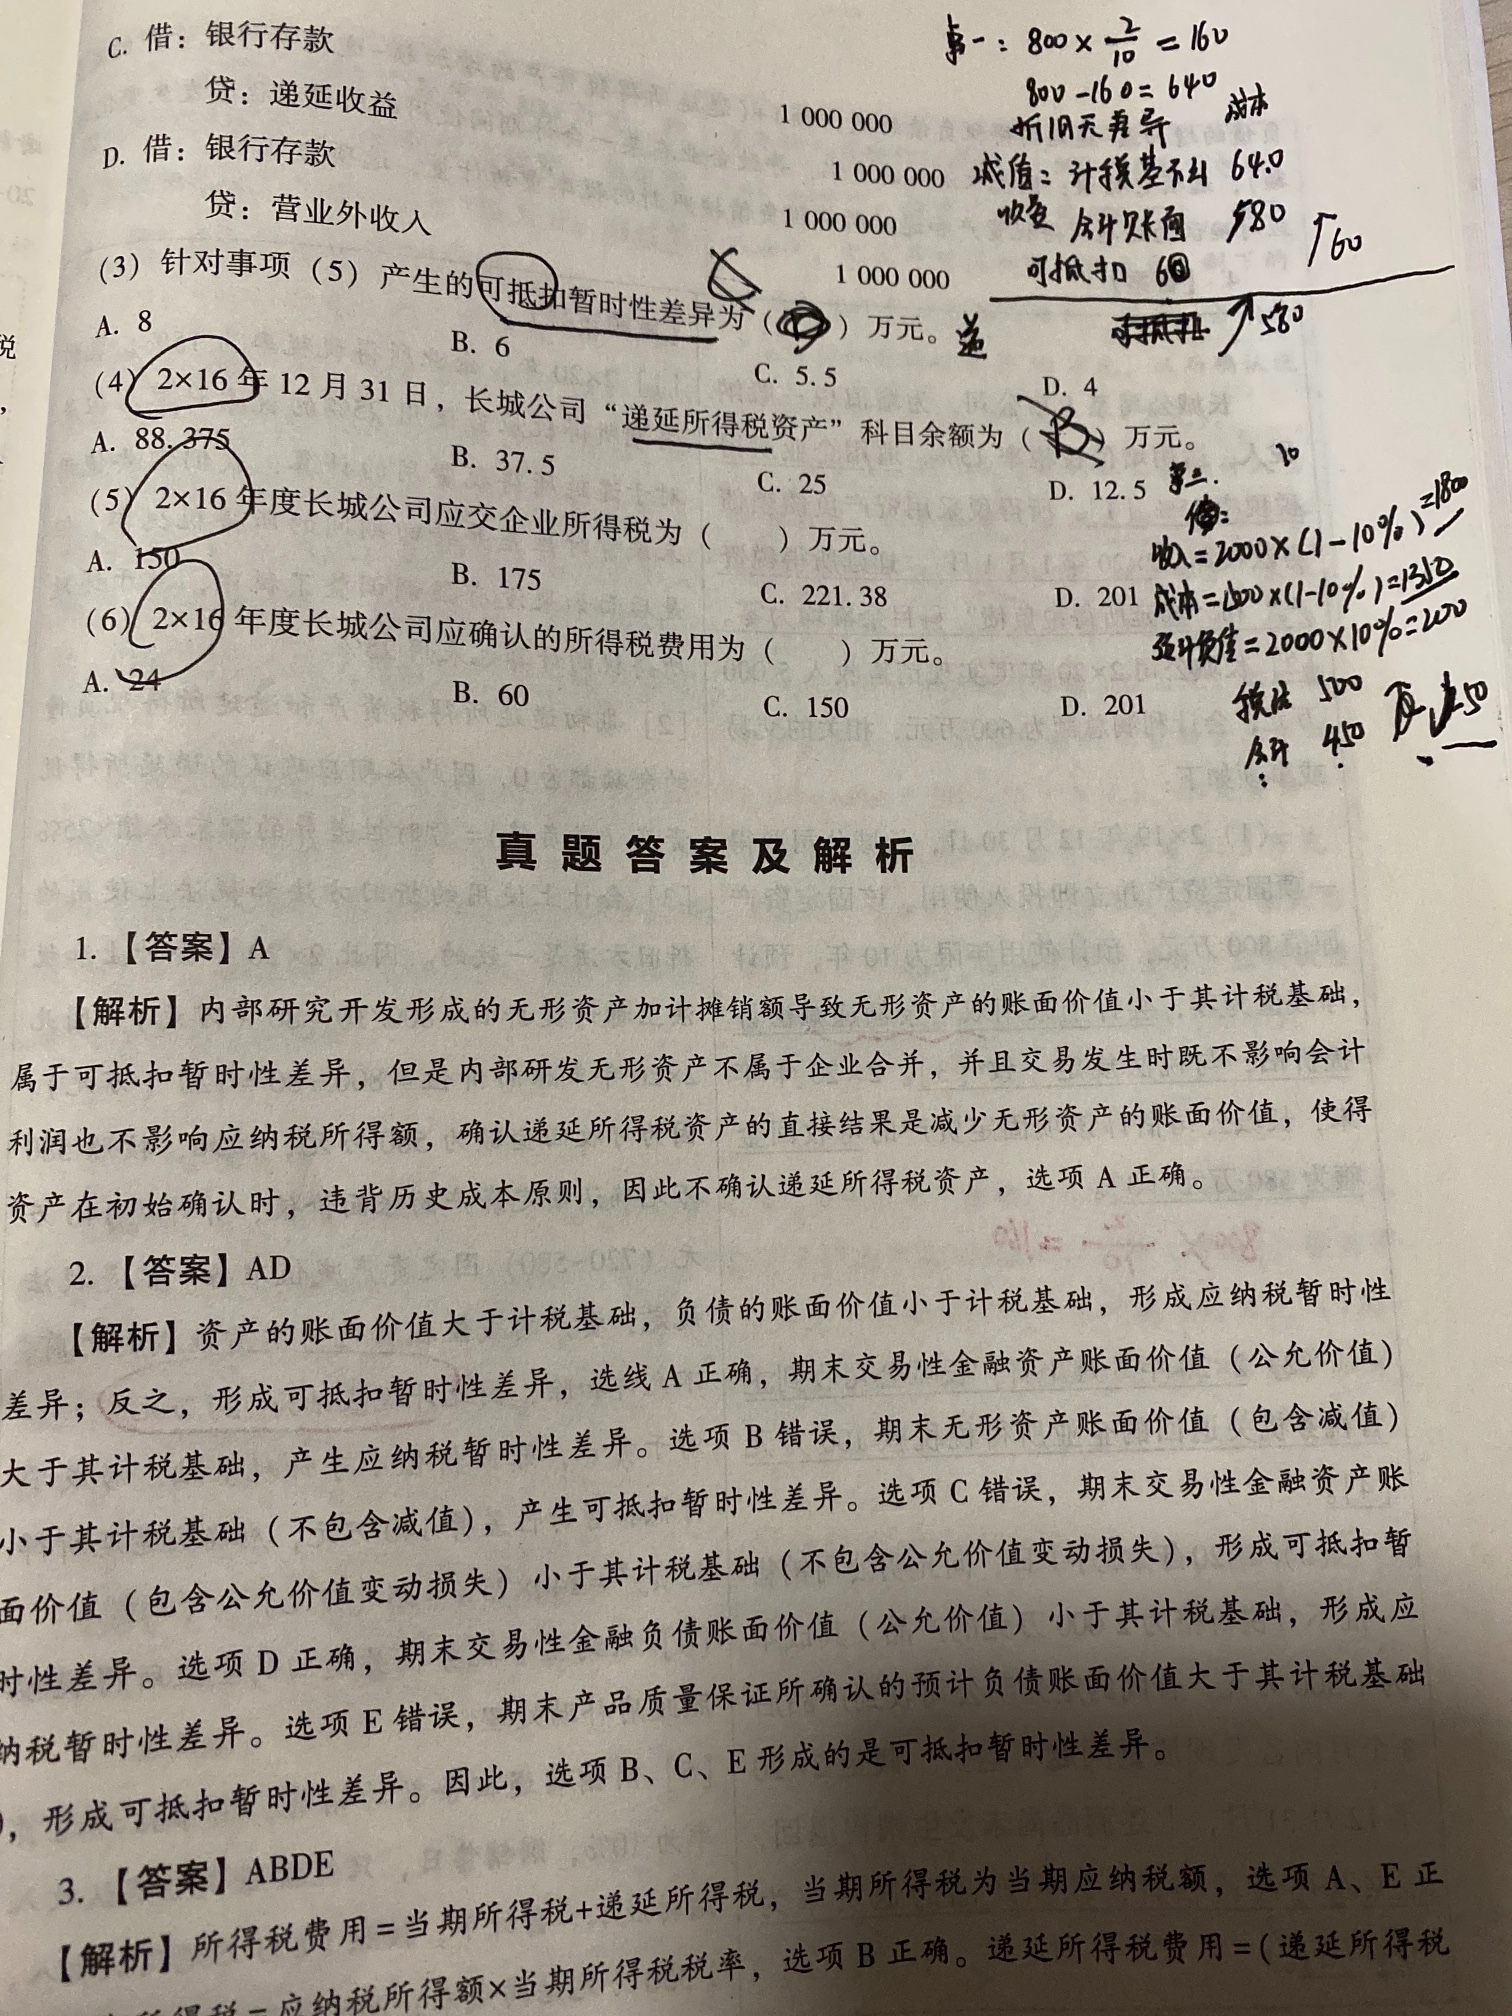 C. 借：银行存款 1 000 000
贷：递延收益 1 000 000
D. 借：银行存款 1 000 000
贷：营业外收入 1 000 000
(3) 针对事项（5）产生的可抵扣暂时性差异为（ ）万元。
A. 8 B. 6 C. 5.5 D. 4
(4) 2×16 年 12 月 31 日，长城公司“递延所得税资产”科目余额为（ B ）万元。
A. 88.375 B. 37.5 C. 25 D. 12.5
(5) 2×16 年度长城公司应交企业所得税为（ ）万元。
A. 150 B. 175 C. 221.38 D. 201
(6) 2×16 年度长城公司应确认的所得税费用为（ ）万元。
A. 24 B. 60 C. 150 D. 201
第一：800×2/10＝160
800-160=640
折旧无差异
成本
减值：计税基础 640
会计账面 580
↑60
可抵扣 60
↑580
递
10
收入＝2000×(1-10%)＝1800
成本＝1500×(1-10%)＝1350
预计负债＝2000×10%＝200
税法 500
会计 450
50
真题答案及解析
1. 【答案】A
【解析】内部研究开发形成的无形资产加计摊销额导致无形资产的账面价值小于其计税基础，
属于可抵扣暂时性差异，但是内部研发无形资产不属于企业合并，并且交易发生时既不影响会计
利润也不影响应纳税所得额，确认递延所得税资产的直接结果是减少无形资产的账面价值，使得
资产在初始确认时，违背历史成本原则，因此不确认递延所得税资产，选项 A 正确。
2. 【答案】AD
【解析】资产的账面价值大于计税基础，负债的账面价值小于计税基础，形成应纳税暂时性
差异；反之，形成可抵扣暂时性差异，选线 A 正确，期末交易性金融资产账面价值（公允价值）
大于其计税基础，产生应纳税暂时性差异。选项 B 错误，期末无形资产账面价值（包含减值）
小于其计税基础（不包含减值），产生可抵扣暂时性差异。选项 C 错误，期末交易性金融资产账
面价值（包含公允价值变动损失）小于其计税基础（不包含公允价值变动损失），形成可抵扣暂
时性差异。选项 D 正确，期末交易性金融负债账面价值（公允价值）小于其计税基础，形成应
纳税暂时性差异。选项 E 错误，期末产品质量保证所确认的预计负债账面价值大于其计税基础
），形成可抵扣暂时性差异。因此，选项 B、C、E 形成的是可抵扣暂时性差异。
3. 【答案】ABDE
【解析】所得税费用＝当期所得税+递延所得税，当期所得税为当期应纳税额，选项 A、E 正
所得税＝应纳税所得额×当期所得税税率，选项 B 正确。递延所得税费用＝(递延所得税